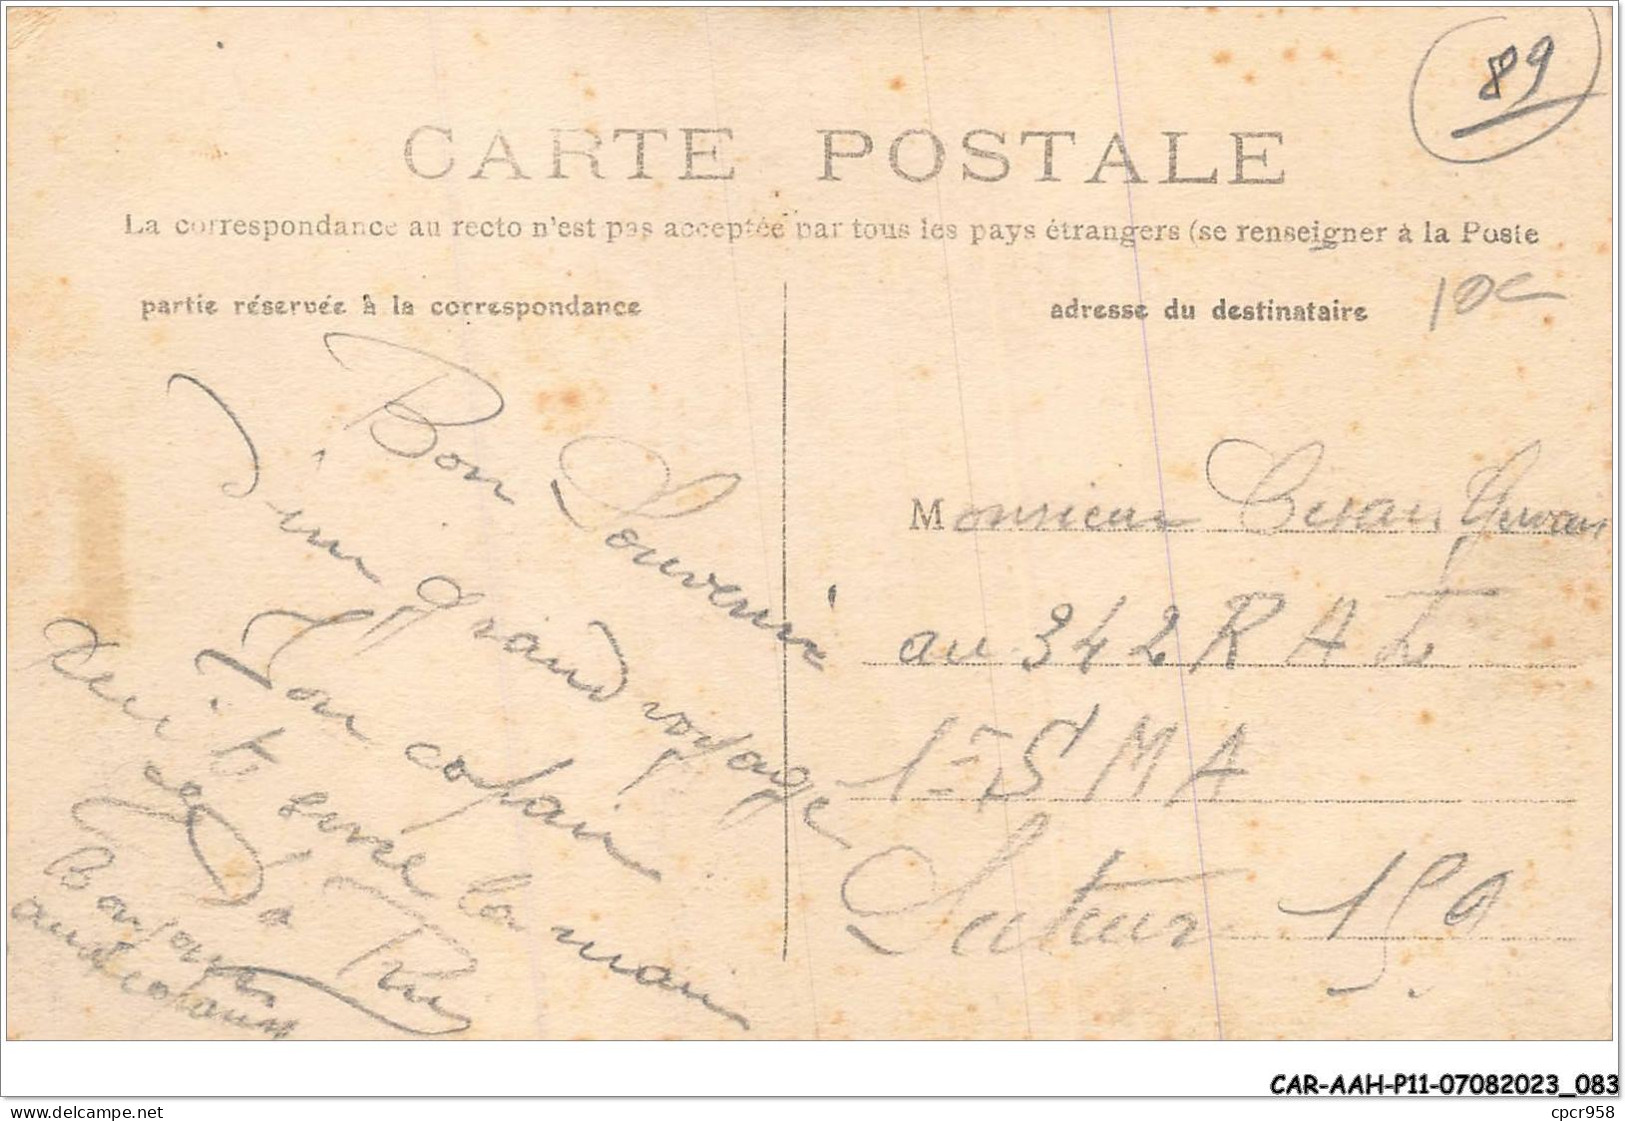 89
CARTE POSTALE
La correspondance au recto n'est pas acceptée par tous les pays étrangers (se renseigner à la Poste
partie réservée à la correspondance
adresse du destinataire
10c
Bon Souvenir
d'un grand voyage
Ton copain
qui te serre la main
Bonjour
aux copains
Monsieur
au 342 R A L
1re S M A
Secteur 159
CAR-AAH-P11-07082023_083
cpcr958